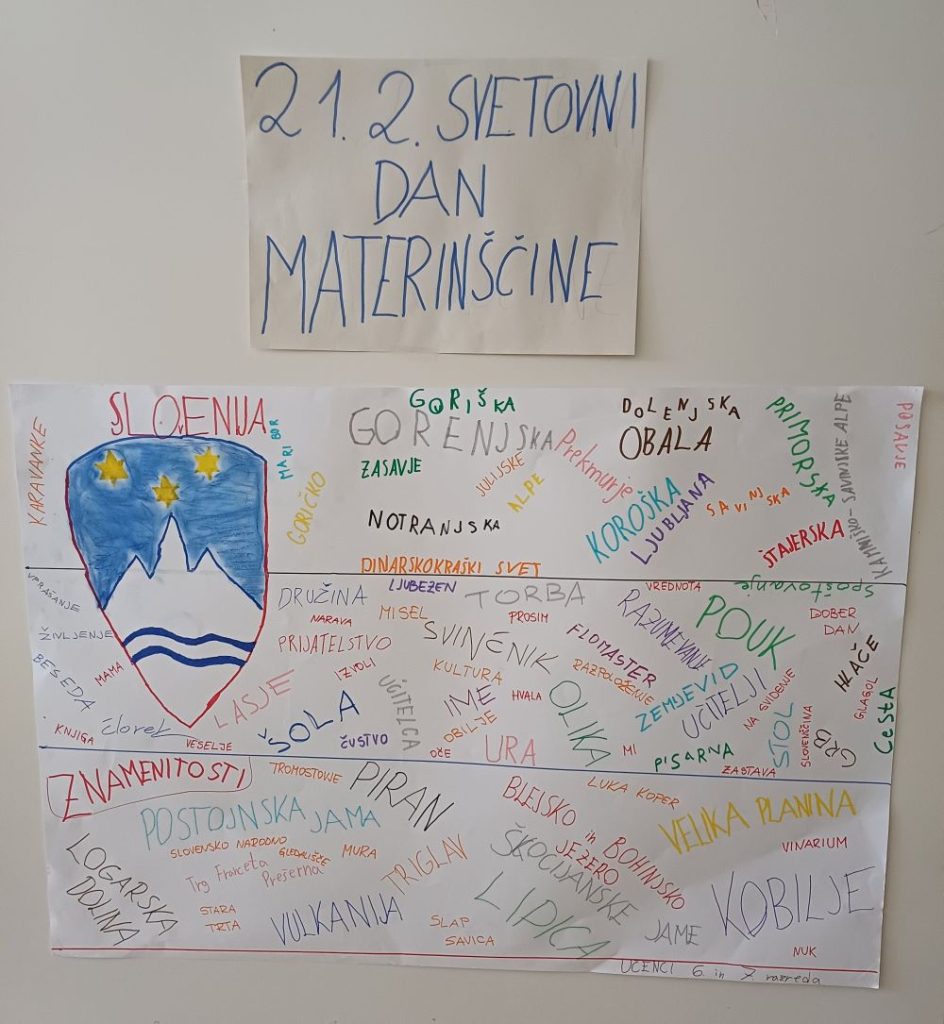 21. 2. SVETOVNI
DAN
MATERINŠČINE
SLOVENIJA
KARAVANKE
MARIBOR
GORIČKO
GORIŠKA
GORENJSKA
ZASAVJE
JULIJSKE
ALPE
Prekmurje
NOTRANJSKA
DINARSKOKRAŠKI SVET
DOLENJSKA
OBALA
KOROŠKA
LJUBLJANA
SAVINJSKA
PRIMORSKA
ŠTAJERSKA
KAMNIŠKO-SAVINJSKE ALPE
POSAVJE
VPRAŠANJE
ŽIVLJENJE
BESEDA
MAMA
KNJIGA
človek
VESELJE
LASJE
DRUŽINA
NARAVA
PRIJATELSTVO
IZVOLI
ŠOLA
ČUSTVO
LJUBEZEN
MISEL
SVINČNIK
KULTURA
UČITELCA
IME
OBILJE
OČE
URA
TORBA
PROSIM
HVALA
FLOMASTER
RAZPOLOŽENJE
OLIKA
MI
VREDNOTA
RAZUMEVANJE
ZEMJEVID
UČITELJI
PISARNA
ZASTAVA
spoštovanje
POUK
NA SVIDENJE
STOL
SLOVENŠČINA
DOBER
DAN
HLAČE
GLAGOL
GRB
CESTA
ZNAMENITOSTI
TROMOSTOVJE
PIRAN
POSTOJNSKA JAMA
SLOVENSKO NARODNO
GLEDALIŠČE
MURA
Trg Franceta
Prešerna
LOGARSKA
DOLINA
STARA
TRTA
VULKANIJA
TRIGLAV
SLAP
SAVICA
BLEJSKO
in BOHINJSKO
JEZERO
LUKA KOPER
ŠKOCIJANSKE
JAME
LIPICA
VELIKA PLANINA
VINARIUM
KOBILJE
NUK
UČENCI 6. in 7. razreda